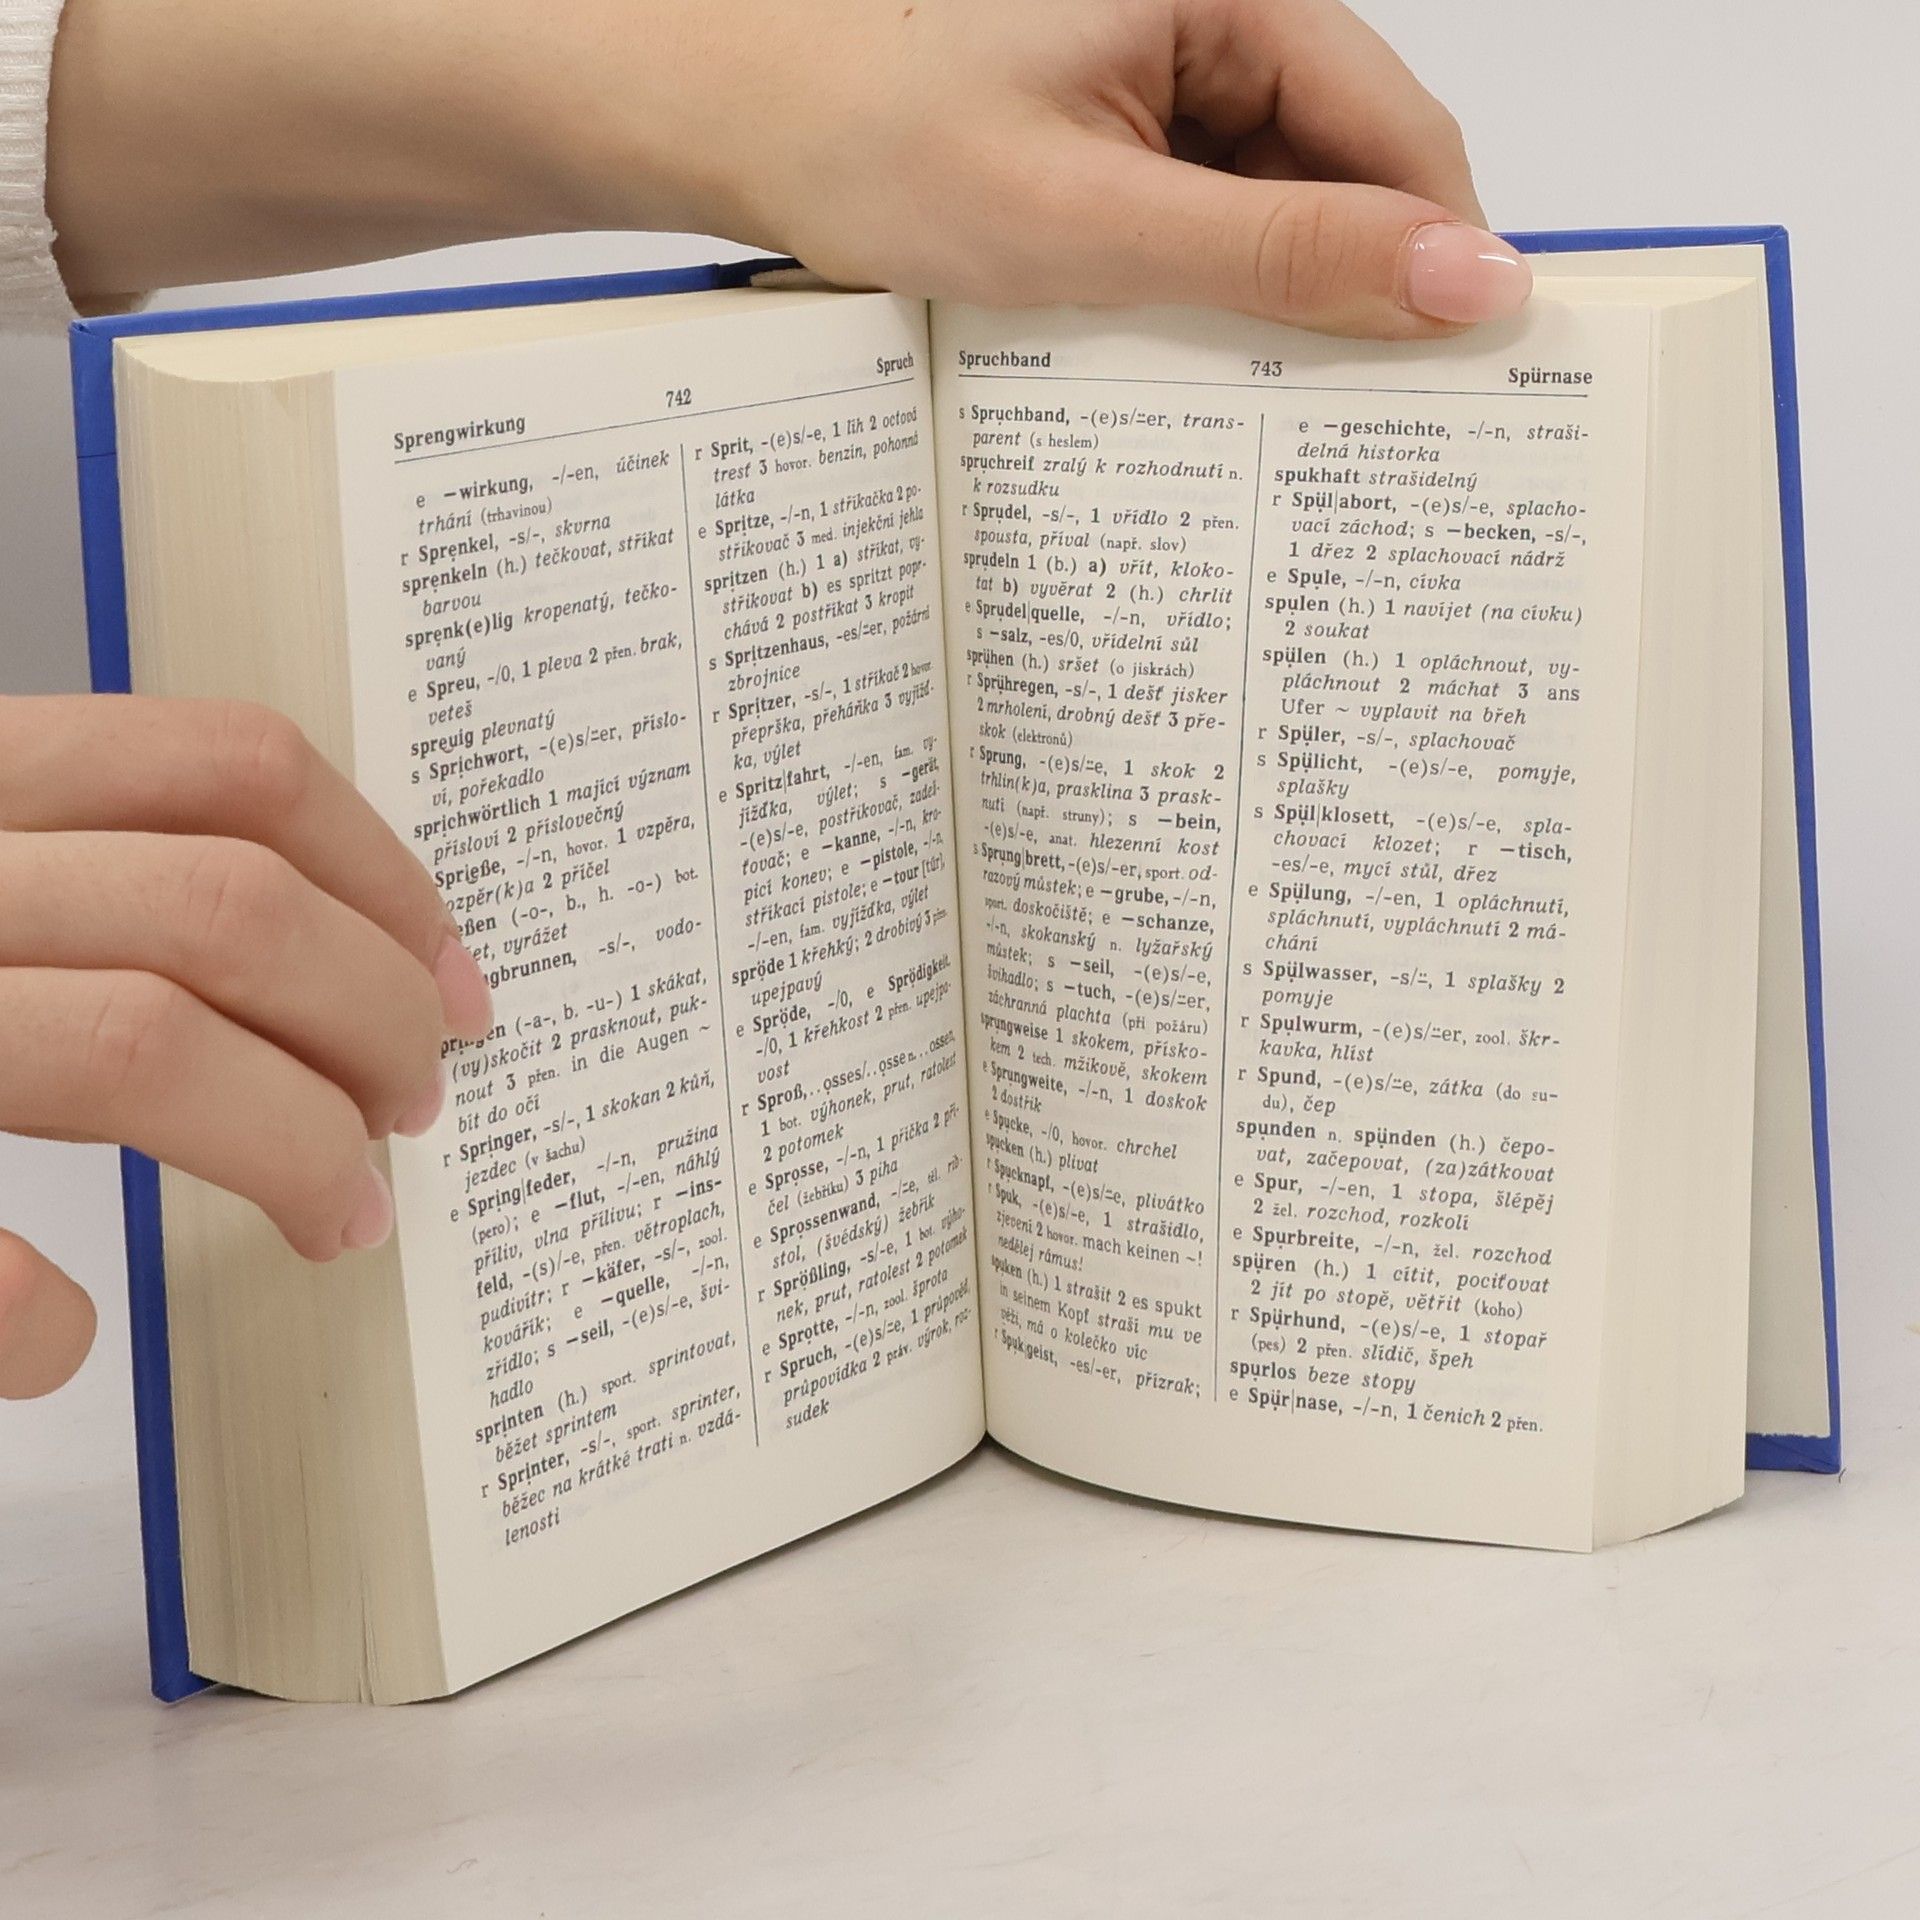 Sprengwirkung 742 Spruch
e —wirkung, -/-en, účinek
trhání (trhavinou)
r Sprenkel, -s/-, skvrna
sprenkeln (h.) tečkovat, stříkat
barvou
sprenk(e)lig kropenatý, tečko-
vaný
e Spreu, -/0, 1 pleva 2 přen. brak,
veteš
spreuig plevnatý
s Sprichwort, -(e)s/⸚er, příslo-
ví, pořekadlo
sprichwörtlich 1 mající význam
přísloví 2 příslovečný
Sprieße, -/-n, hovor. 1 vzpěra,
ozpěr(k)a 2 příčel
eßen (-o-, b., h. -o-) bot.
et, vyrážet
gbrunnen, -s/-, vodo-
(-a-, b. -u-) 1 skákat,
(vy)skočit 2 prasknout, puk-
nout 3 přen. in die Augen ~
bít do očí
r Springer, -s/-, 1 skokan 2 kůň,
jezdec (v šachu)
e Spring|feder, -/-n, pružina
(pero); e —flut, -/-en, náhlý
příliv, vlna přílivu; r —ins-
feld, -(s)/-e, přen. větroplach,
pudivítr; r —käfer, -s/-, zool.
kovářík; e —quelle, -/-n,
zřídlo; s —seil, -(e)s/-e, švi-
hadlo
sprinten (h.) sport. sprintovat,
běžet sprintem
r Sprinter, -s/-, sport. sprinter,
běžec na krátké trati n. vzdá-
lenosti
r Sprit, -(e)s/-e, 1 líh 2 octová
tresť 3 hovor. benzín, pohonná
látka
e Spritze, -/-n, 1 stříkačka 2 po-
střikovač 3 med. injekční jehla
spritzen (h.) 1 a) stříkat, vy-
střikovat b) es spritzt popr-
chává 2 postříkat 3 kropit
s Spritzenhaus, -es/⸚er, požární
zbrojnice
r Spritzer, -s/-, 1 stříkač 2 hovor.
přeprška, přeháňka 3 vyjížď-
ka, výlet
e Spritz|fahrt, -/-en, fam. vy-
jížďka, výlet; s —gerät,
-(e)s/-e, postřikovač, zadeš-
ťovač; e —kanne, -/-n, kro-
picí konev; e —pistole, -/-n,
stříkací pistole; e —tour [túr],
-/-en, fam. vyjížďka, výlet
spröde 1 křehký; 2 drobivý 3 přen.
upejpavý
e Spröde, -/0, e Sprödigkeit,
-/0, 1 křehkost 2 přen. upejpa-
vost
r Sproß, ..osses/..osse n. ..ossen,
1 bot. výhonek, prut, ratolest
2 potomek
e Sprosse, -/-n, 1 příčka 2 pří-
čel (žebříku) 3 piha
e Sprossenwand, -/⸚e, těl. rib-
stol, (švédský) žebřík
r Sprößling, -s/-e, 1 bot. výho-
nek, prut, ratolest 2 potomek
e Sprotte, -/-n, zool. šprota
r Spruch, -(e)s/⸚e, 1 průpověď,
průpovídka 2 práv. výrok, roz-
sudek
Spruchband 743 Spürnase
s Spruchband, -(e)s/⸚er, trans-
parent (s heslem)
spruchreif zralý k rozhodnutí n.
k rozsudku
r Sprudel, -s/-, 1 vřídlo 2 přen.
spousta, příval (např. slov)
sprudeln 1 (b.) a) vřít, kloko-
tat b) vyvěrat 2 (h.) chrlit
e Sprudel|quelle, -/-n, vřídlo;
s —salz, -es/0, vřídelní sůl
sprühen (h.) sršet (o jiskrách)
r Sprühregen, -s/-, 1 déšť jisker
2 mrholení, drobný déšť 3 pře-
skok (elektronů)
r Sprung, -(e)s/⸚e, 1 skok 2
trhlin(k)a, prasklina 3 prask-
nutí (např. struny); s —bein,
-(e)s/-e, anat. hlezenní kost
s Sprung|brett, -(e)s/-er, sport. od-
razový můstek; e —grube, -/-n,
sport. doskočiště; e —schanze,
-/-n, skokanský n. lyžařský
můstek; s —seil, -(e)s/-e,
švihadlo; s —tuch, -(e)s/⸚er,
záchranná plachta (při požáru)
sprungweise 1 skokem, přísko-
kem 2 tech. mžikově, skokem
e Sprungweite, -/-n, 1 doskok
2 dostřik
e Spucke, -/0, hovor. chrchel
spucken (h.) plivat
r Spucknapf, -(e)s/⸚e, plivátko
r Spuk, -(e)s/-e, 1 strašidlo,
zjevení 2 hovor. mach keinen ~!
nedělej rámus!
spuken (h.) 1 strašit 2 es spukt
in seinem Kopf straší mu ve
věži, má o kolečko víc
r Spuk|geist, -es/-er, přízrak;
e —geschichte, -/-n, straši-
delná historka
spukhaft strašidelný
r Spül|abort, -(e)s/-e, splacho-
vací záchod; s —becken, -s/-,
1 dřez 2 splachovací nádrž
e Spule, -/-n, cívka
spulen (h.) 1 navíjet (na cívku)
2 soukat
spülen (h.) 1 opláchnout, vy-
pláchnout 2 máchat 3 ans
Ufer ~ vyplavit na břeh
r Spüler, -s/-, splachovač
s Spülicht, -(e)s/-e, pomyje,
splašky
s Spül|klosett, -(e)s/-e, spla-
chovací klozet; r —tisch,
-es/-e, mycí stůl, dřez
e Spülung, -/-en, 1 opláchnutí,
spláchnutí, vypláchnutí 2 má-
chání
s Spülwasser, -s/⸚, 1 splašky 2
pomyje
r Spulwurm, -(e)s/⸚er, zool. škr-
kavka, hlíst
r Spund, -(e)s/⸚e, zátka (do su-
du), čep
spunden n. spünden (h.) čepo-
vat, začepovat, (za)zátkovat
e Spur, -/-en, 1 stopa, šlépěj
2 žel. rozchod, rozkolí
e Spurbreite, -/-n, žel. rozchod
spüren (h.) 1 cítit, pociťovat
2 jít po stopě, větřit (koho)
r Spürhund, -(e)s/-e, 1 stopař
(pes) 2 přen. slídič, špeh
spurlos beze stopy
e Spür|nase, -/-n, 1 čenich 2 přen.